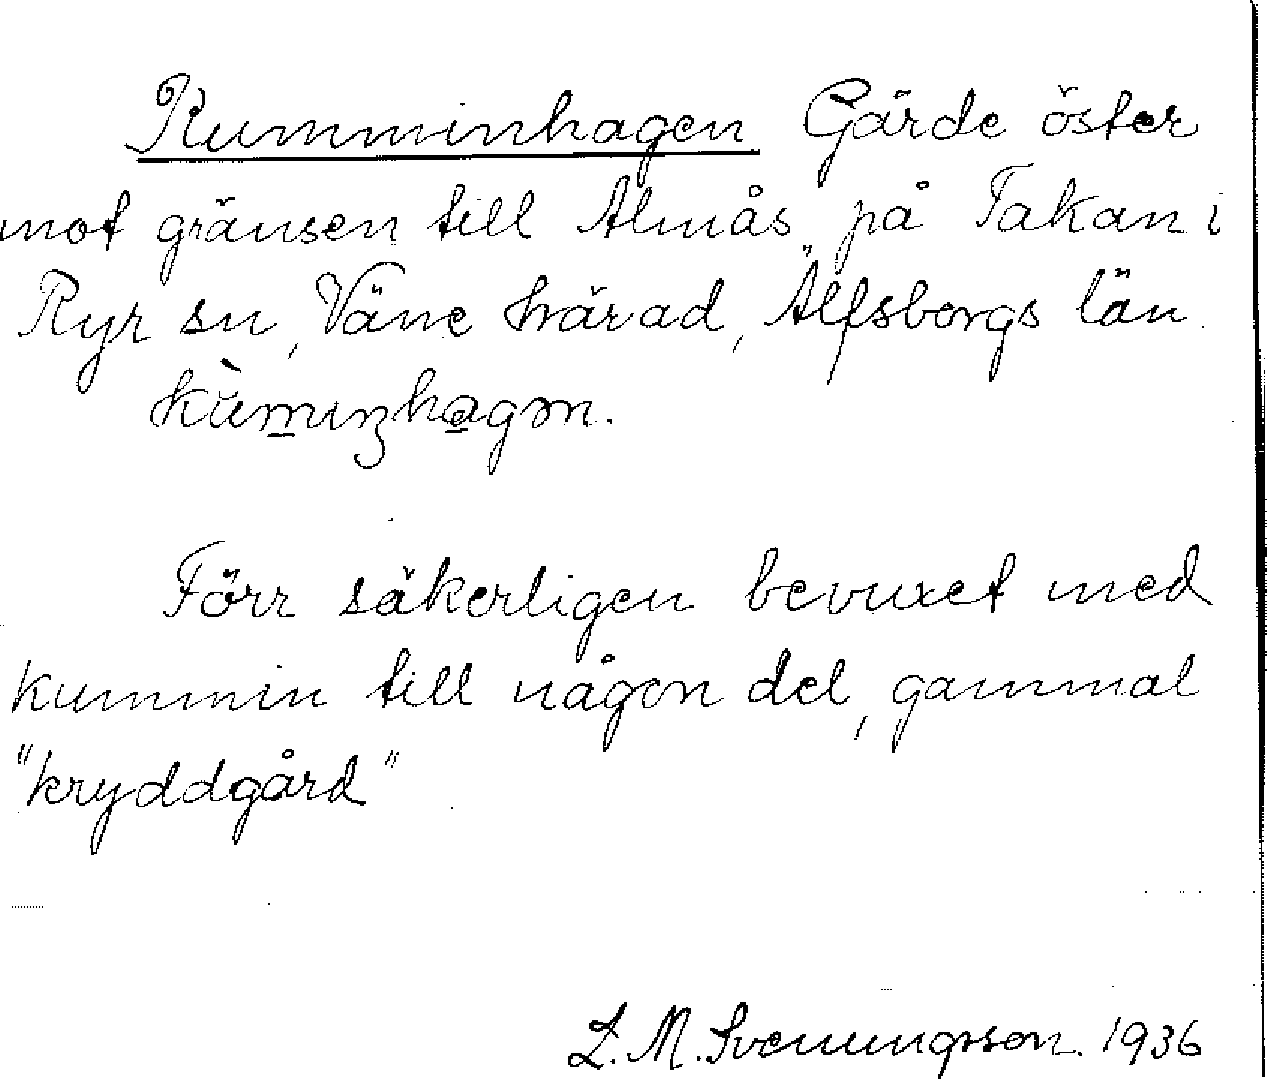 Kumminhagen Gärde öster
mot gränsen till Almås på Takan i
Ryr sn, Väne härad, Älfsborgs län.
Förr säkerligen bevuxet med
kummin till någon del, gammal
"kryddgård"
L. M. Svenungsson. 1936